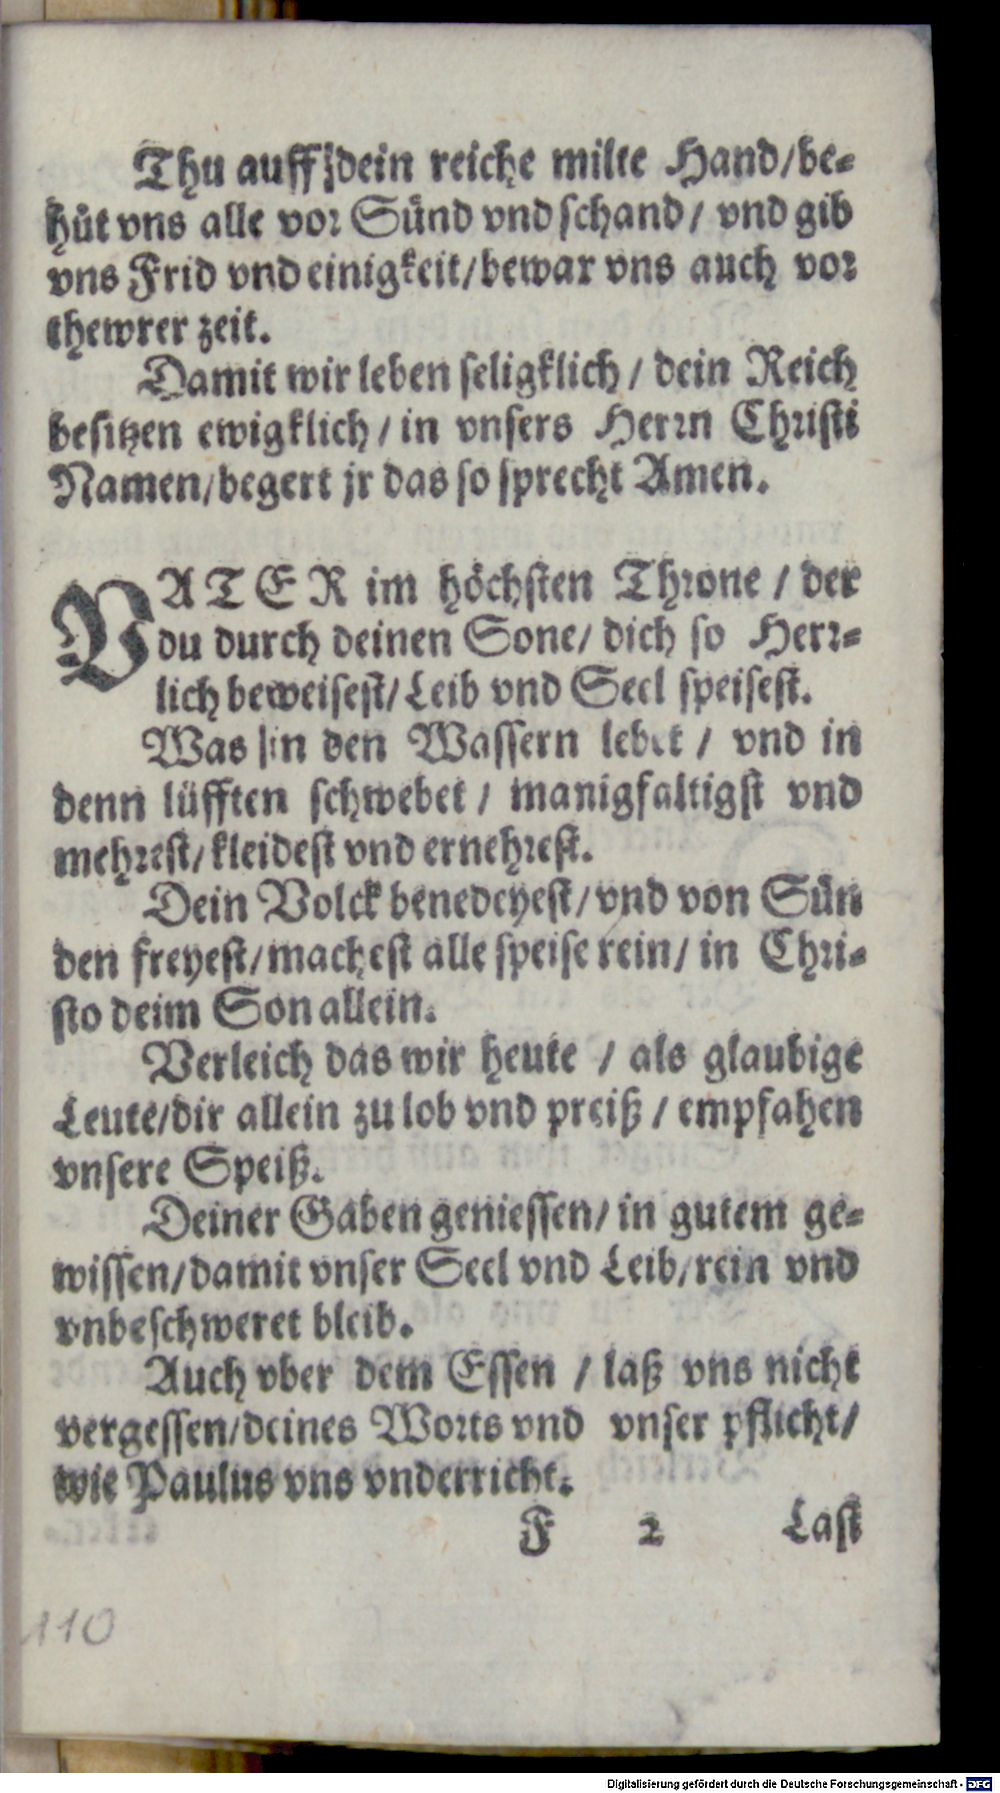 Thu auff dein reiche milte Hand/be-
hüt vns alle vor Sünd vnd schand/ vnd gib
vns Frid vnd einigkeit/bewar vns auch vor
thewrer zeit.
Damit wir leben seligklich/ dein Reich
besitzen ewigklich/ in vnsers Herrn Christi
Namen/begert jr das so sprecht Amen.
VATER im höchsten Throne / der
du durch deinen Sone/ dich so Herr-
lich beweisest/ Leib vnd Seel speisest.
Was in den Wassern lebet / vnd in
denn lüfften schwebet / manigfaltigst vnd
mehrest/ kleidest vnd ernehrest.
Dein Volck benedeyest/ vnd von Sün
den freyest/machest alle speise rein/ in Chri-
sto deim Son allein.
Verleich das wir heute / als glaubige
Leute/dir allein zu lob vnd preiß / empfahen
vnsere Speiß.
Deiner Gaben geniessen/ in gutem ge-
wissen/damit vnser Seel vnd Leib/ rein vnd
vnbeschweret bleib.
Auch vber dem Essen / laß vns nicht
vergessen/deines Worts vnd vnser pflicht/
wie Paulus vns vnderricht.
F 2 Last
110
Digitalisierung gefördert durch die Deutsche Forschungsgemeinschaft - DFG